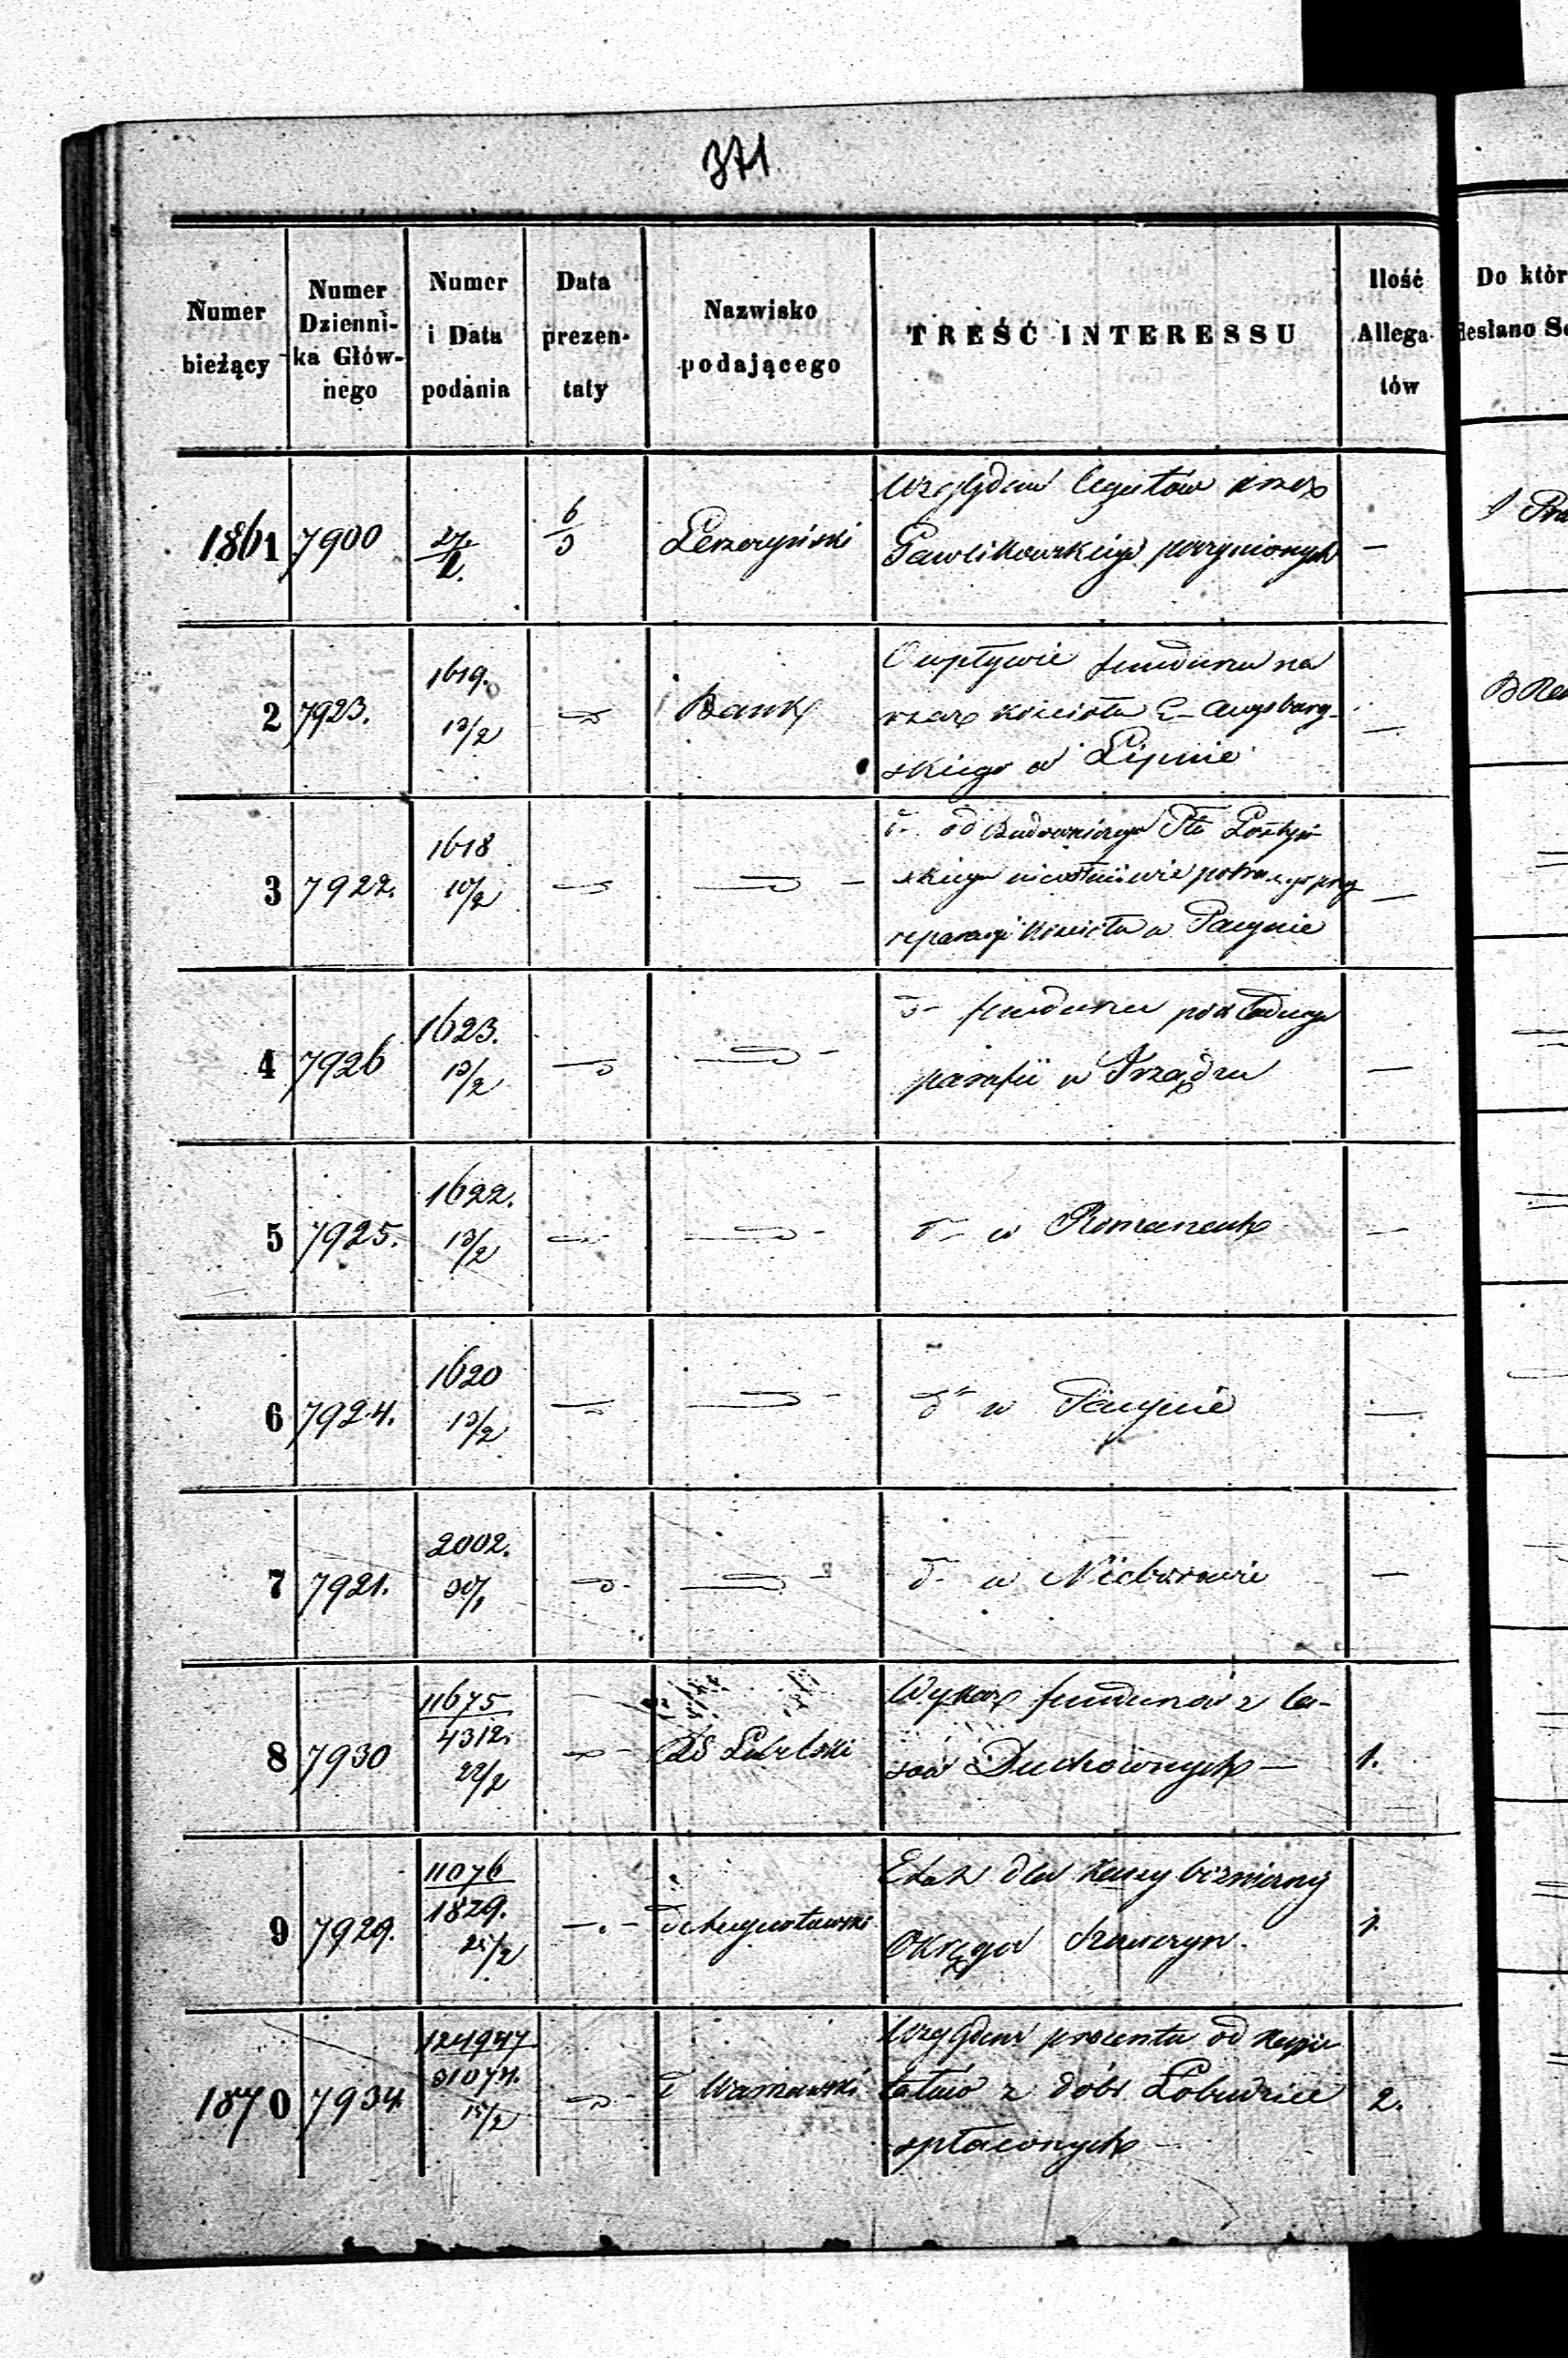 371
Numer bieżący
Numer Dzienni-ka Głów-nego
Numer i Data podania
Data prezen-taty
Nazwisko podającego
TREŚĆ INTERESSU
Ilość Allega-tów
Do któr
desłano Se
1861 7900 27/2. 6/3 Leszczyński Względem legatów przez
Pawlikowskiego poczynionych —
2 7923. 1619. 13/2 Bank O wpływie funduszu na
rzecz kościoła E. Augsburg-
skiego w Lipnie —
3 7922. 1618 10/2 d- od Budowniczego Ptu Gostyń-
skiego
reparacyi Kościoła w Pacynie —
4 7926 1623. 13/2 d- funduszu pokładnego
parafii w Irządzu —
5 7925. 1622. 13/2 d- w Romanach —
6 7924. 1620 13/2 d- w Pacynie —
7 7921. 2002. 30/1 d- w Nieborowie —
8 7930 11675 / 4312. 22/2 Lubelski Wykaz funduszów z la-
sów Duchownych — 1.
9 7929. 11076 / 1829. 25/2 Augustowski Etat dla Kassy
Okręgu Szawczyn. 1.
1870 7934 124947 / 31074. 15/2 Warszawski Względem procentu od kapi-
tałów z dóbr Łobudzice
spłaconych — 2.